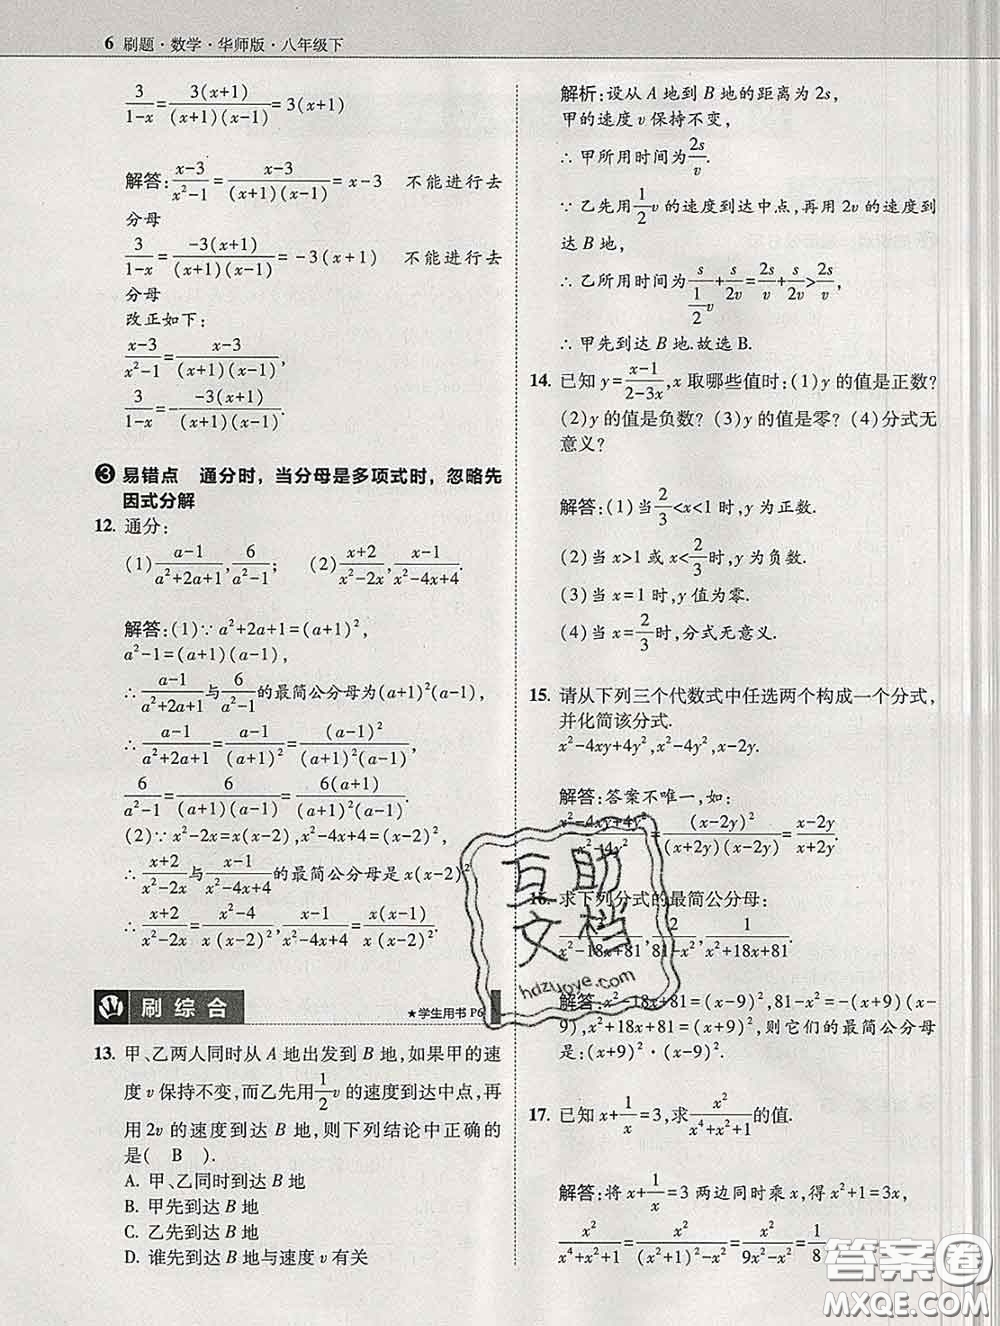 6 刷题·数学·华师版·八年级下
3/(1-x)=3(x+1)/((x+1)(x-1))=3(x+1)
解答:(x-3)/(x²-1)=(x-3)/((x+1)(x-1))=x-3 不能进行去
分母
3/(1-x)=-3(x+1)/((x+1)(x-1))=-3(x+1) 不能进行去
分母
改正如下:
(x-3)/(x²-1)=(x-3)/((x+1)(x-1)),
3/(1-x)=-3(x+1)/((x+1)(x-1)).
❸ 易错点 通分时，当分母是多项式时，忽略先
因式分解
12. 通分:
(1)(a-1)/(a²+2a+1),6/(a²-1); (2)(x+2)/(x²-2x),(x-1)/(x²-4x+4).
解答:(1)∵a²+2a+1=(a+1)²,
a²-1=(a+1)(a-1),
∴(a-1)/(a²+2a+1)与6/(a²-1)的最简公分母为(a+1)²(a-1),
∴(a-1)/(a²+2a+1)=(a-1)/(a+1)²=(a-1)²/((a+1)²(a-1)),
6/(a²-1)=6/((a+1)(a-1))=6(a+1)/((a+1)²(a-1)).
(2)∵x²-2x=x(x-2),x²-4x+4=(x-2)²,
∴(x+2)/(x²-2x)与(x-1)/(x²-4x+4)的最简公分母是x(x-2)²
∴(x+2)/(x²-2x)=(x²-4)/(x(x-2)²),(x-1)/(x²-4x+4)=x(x-1)/(x(x-2)²).
刷综合 ★学生用书 P6
13. 甲、乙两人同时从 A 地出发到 B 地,如果甲的速
度 v 保持不变,而乙先用1/2v的速度到达中点,再
用 2v 的速度到达 B 地,则下列结论中正确的
是( B ).
A. 甲、乙同时到达 B 地
B. 甲先到达 B 地
C. 乙先到达 B 地
D. 谁先到达 B 地与速度 v 有关
解析:设从 A 地到 B 地的距离为 2s,
甲的速度 v 保持不变,
∴甲所用时间为2s/v.
∵乙先用1/2v的速度到达中点,再用 2v 的速度到
达 B 地,
∴乙所用时间为s/(1/2v)+s/2v=2s/v+s/2v>2s/v,
∴甲先到达 B 地.故选 B.
14. 已知 y=(x-1)/(2-3x),x 取哪些值时:(1)y 的值是正数?
(2)y 的值是负数? (3)y 的值是零? (4)分式无
意义?
解答:(1)当2/3<x<1时,y 为正数.
(2)当 x>1 或 x<2/3时,y 为负数.
(3)当 x=1 时,y 值为零.
(4)当 x=2/3时,分式无意义.
15. 请从下列三个代数式中任选两个构成一个分式,
并化简该分式.
x²-4xy+4y²,x²-4y²,x-2y.
解答:答案不唯一,如:
(x²-4xy+4y²)/(x²-4y²)=(x-2y)²/((x+2y)(x-2y))=(x-2y)/(x+2y).
16. 求下列分式的最简公分母:
2/(x²-18x+81),2/(81-x²),1/(x²+18x+81).
解答:x²-18x+81=(x-9)²,81-x²=-(x+9)
(x-9),x²+18x+81=(x+9)²,则它们的最简公分母
是:(x+9)²·(x-9)².
17. 已知 x+1/x=3,求x²/(x⁴+x²+1)的值.
解答:将 x+1/x=3 两边同时乘 x,得 x²+1=3x,
x²/(x⁴+x²+1)=x²/((x²+1)²-x²)=x²/((3x)²-x²)=x²/8x²=1/8
互助
文档
hdzuoye.com
答案圈
MXQE.COM